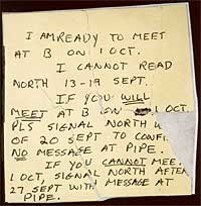 I AM READY TO MEET
AT B ON 1 OCT.
I CANNOT READ
NORTH 13-19 SEPT.
IF YOU WILL
MEET AT B ON 1 OCT.
PLS SIGNAL NORTH W
OF 20 SEPT TO CONFI
NO MESSAGE AT PIPE.
IF YOU CANNOT MEE
1 OCT, SIGNAL NORTH AFTER
27 SEPT WITH MESSAGE AT
PIPE.